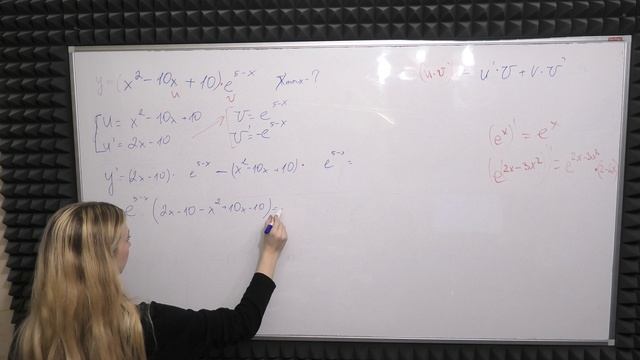 y = (x² - 10x + 10) · e⁵⁻ˣ Xmax - ?
u v
u = x² - 10x + 10 v = e⁵⁻ˣ
u' = 2x - 10 v' = -e⁵⁻ˣ
y' = (2x - 10) · e⁵⁻ˣ - (x² - 10x + 10) · e⁵⁻ˣ =
e⁵⁻ˣ (2x - 10 - x² + 10x - 10) =
(u·v)' = u'·v + v·v'
(eˣ)' = eˣ
(e²ˣ⁻³ˣ²)' = e²ˣ⁻³ˣ²